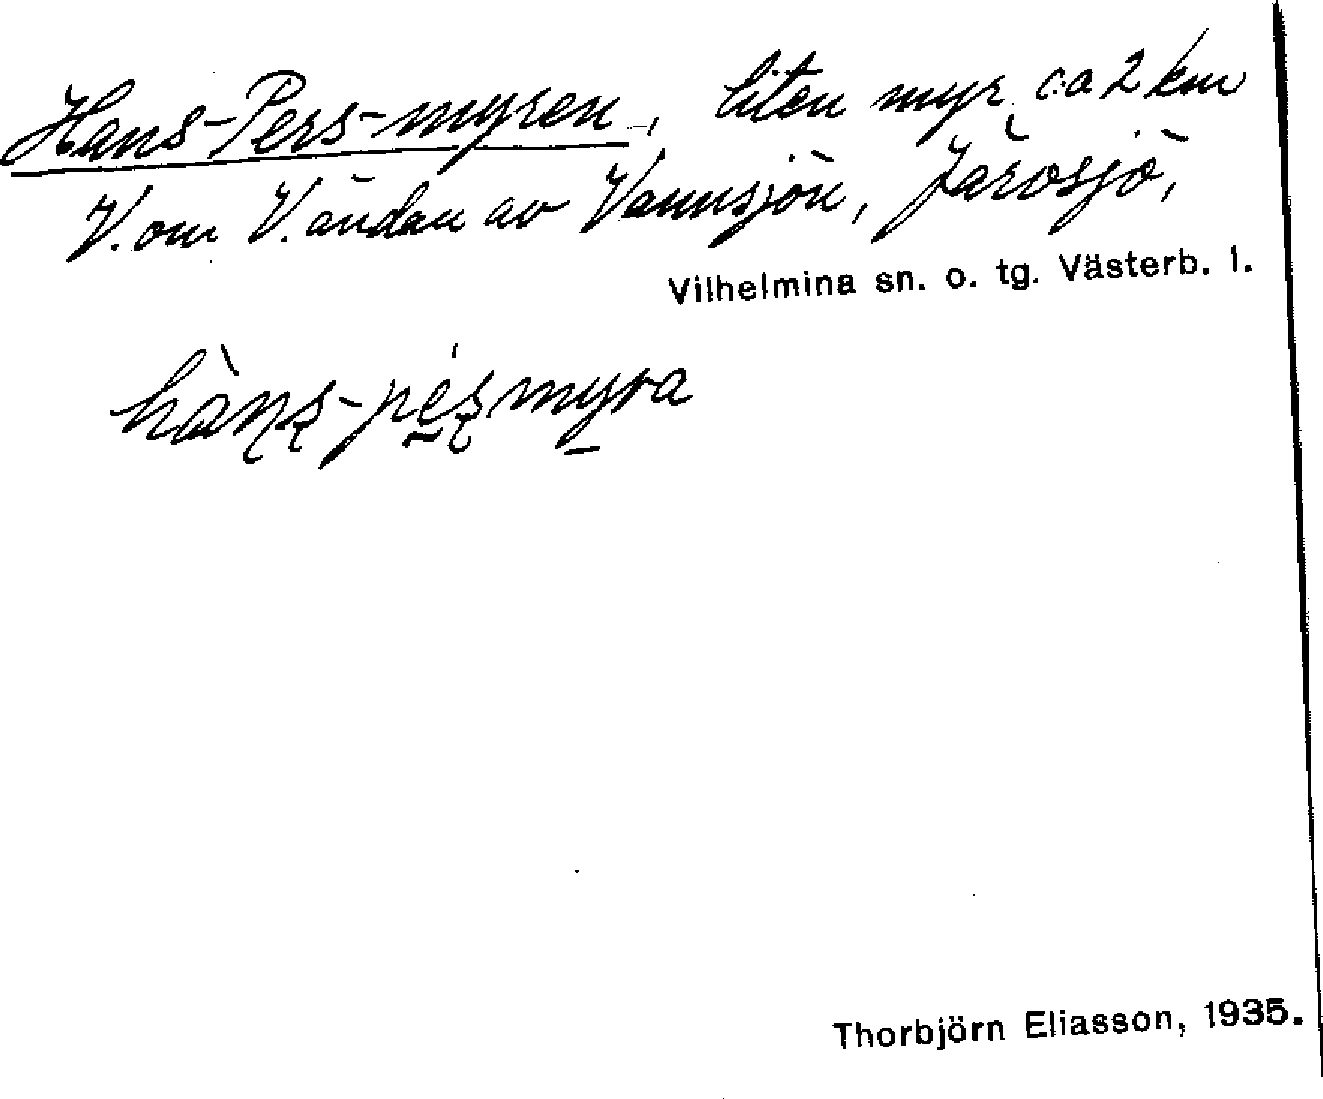 Hans-Pers-myren, liten myr ca 2 km
V. om V. ändan av Vannsjön, Järosjö,
Vilhelmina sn. o. tg. Västerb. l.
hàns-pésmyra
Thorbjörn Eliasson, 1935.